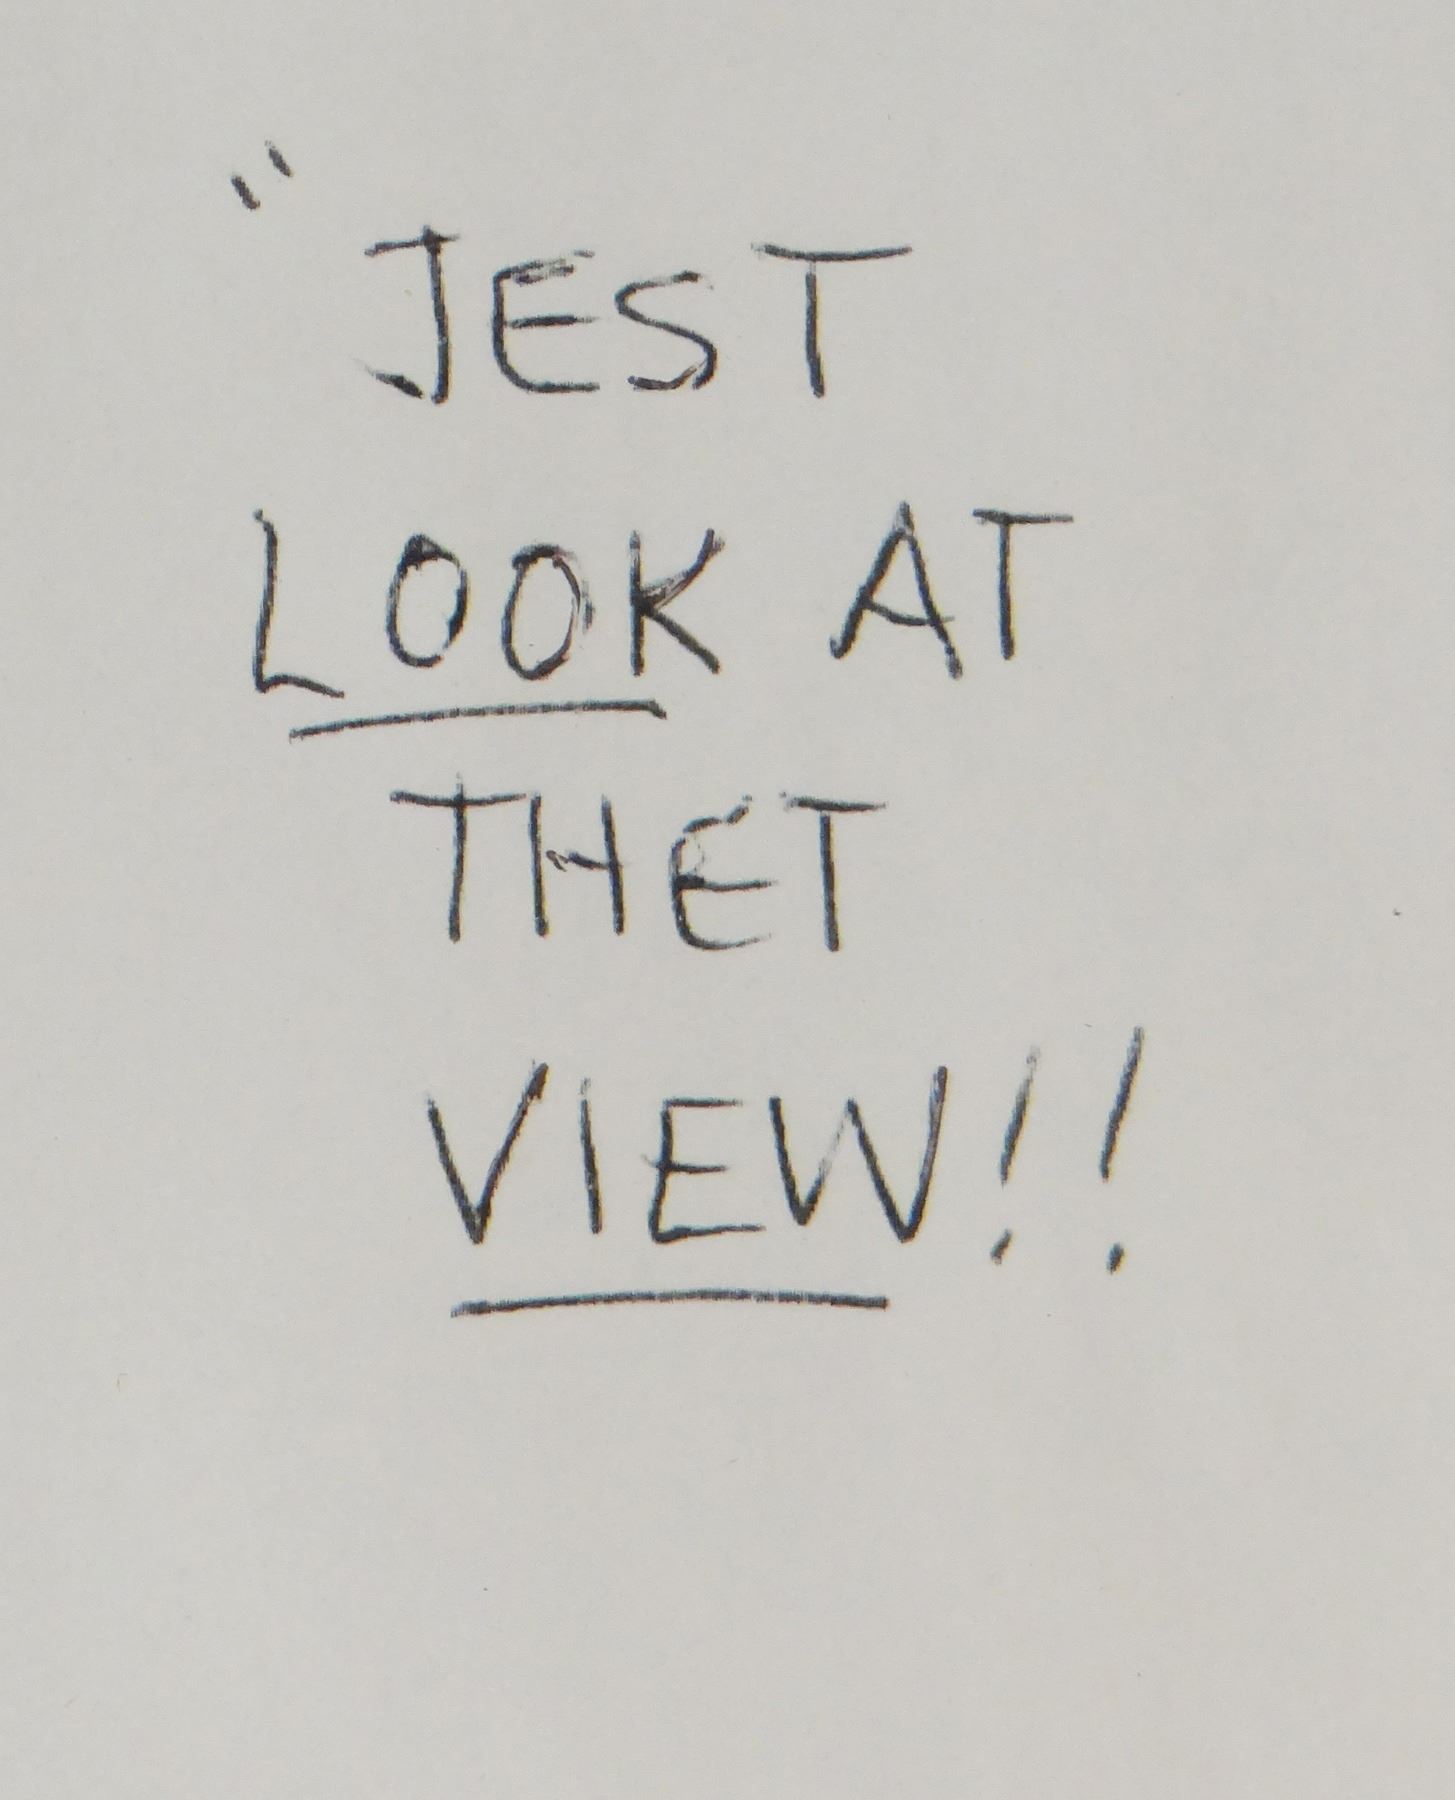 "JEST
LOOK AT
THET
VIEW!!